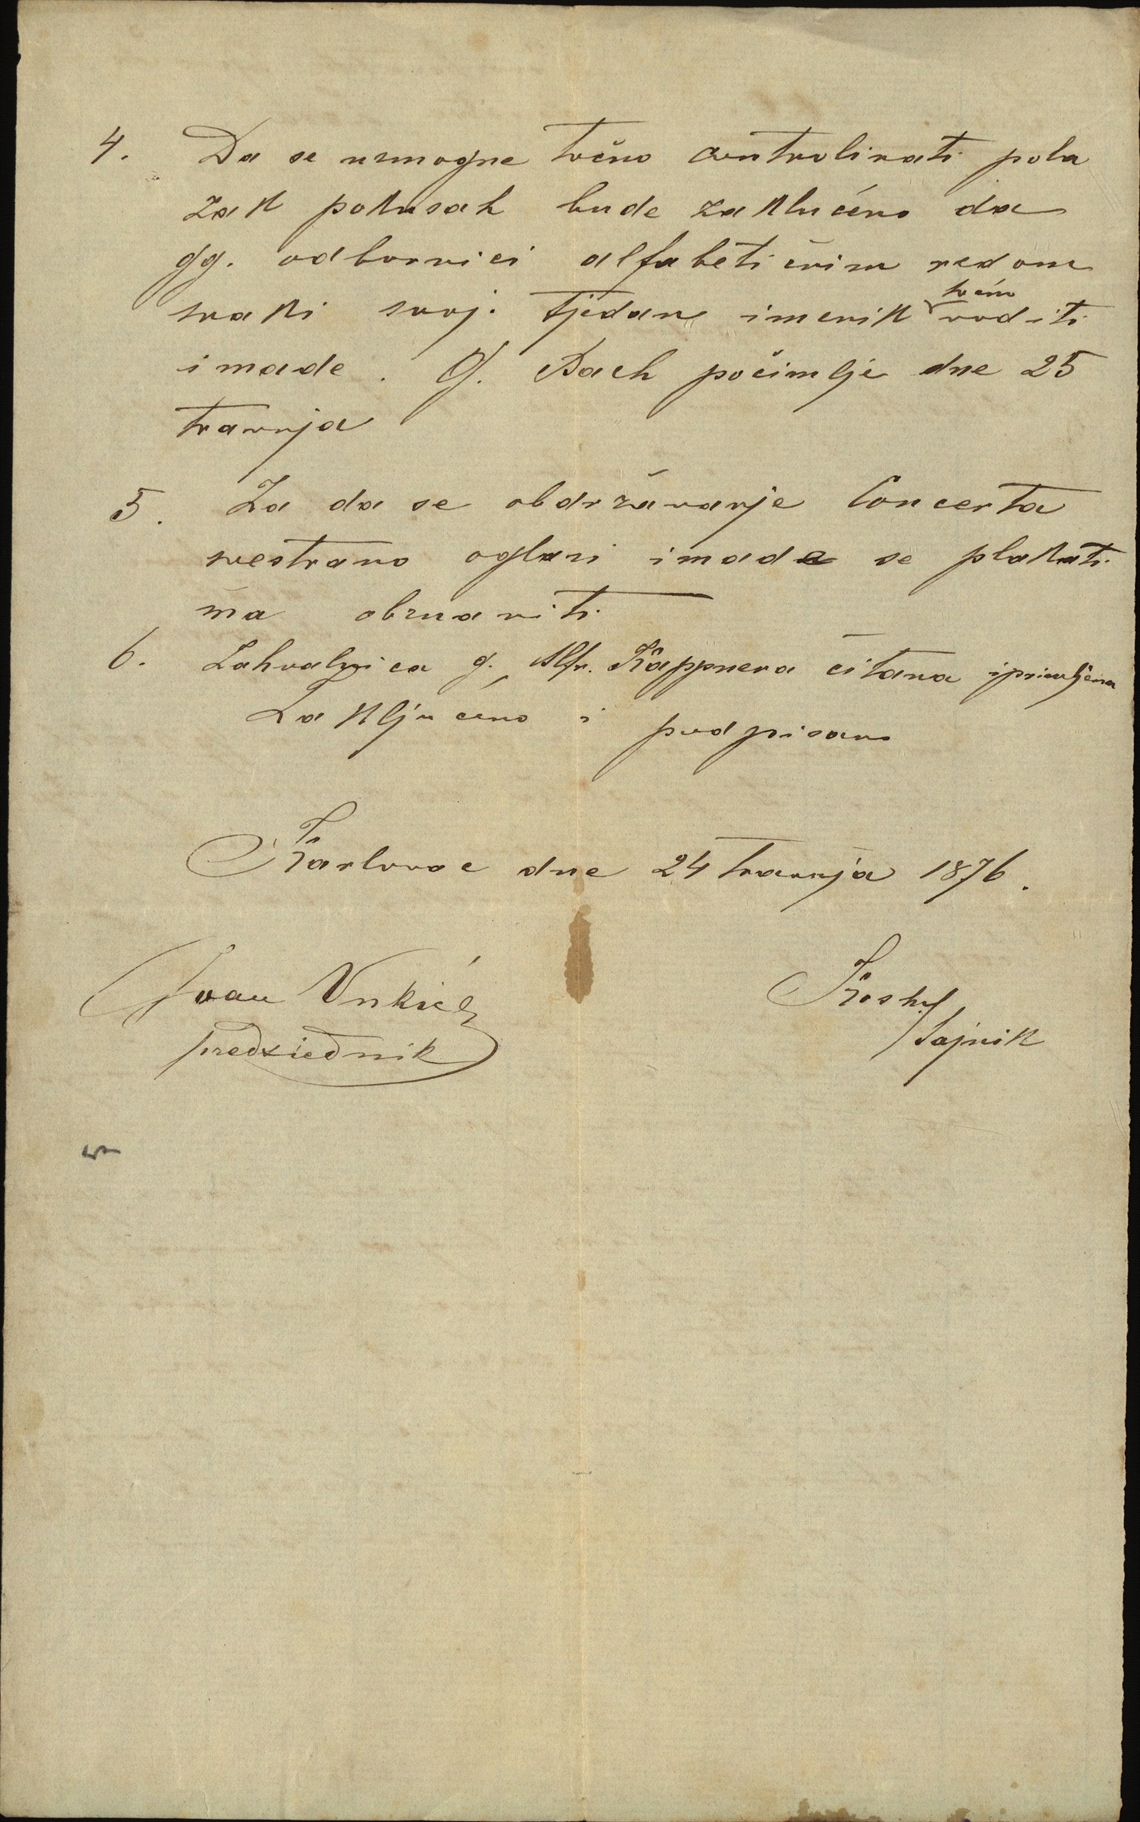 4. Da se uzmogne točno controlirati pola
zak pokusah bude zaklučeno da
gg. odbornici alfabetičnim redom
svaki svoj tjedan imenik točno voditi
imade. G. Bach počimlje dne 25
travnja
5. Za da se obdržavanje Concerta
svestrano oglasi imade se plakati
ma obznaniti
6. Zahvalnica g. Alfr. Käppnera čitana i primljena
Zaključeno i podpisano
Karlovac dne 24 travnja 1876.
Ivan Vukić
predsiednik
tajnik